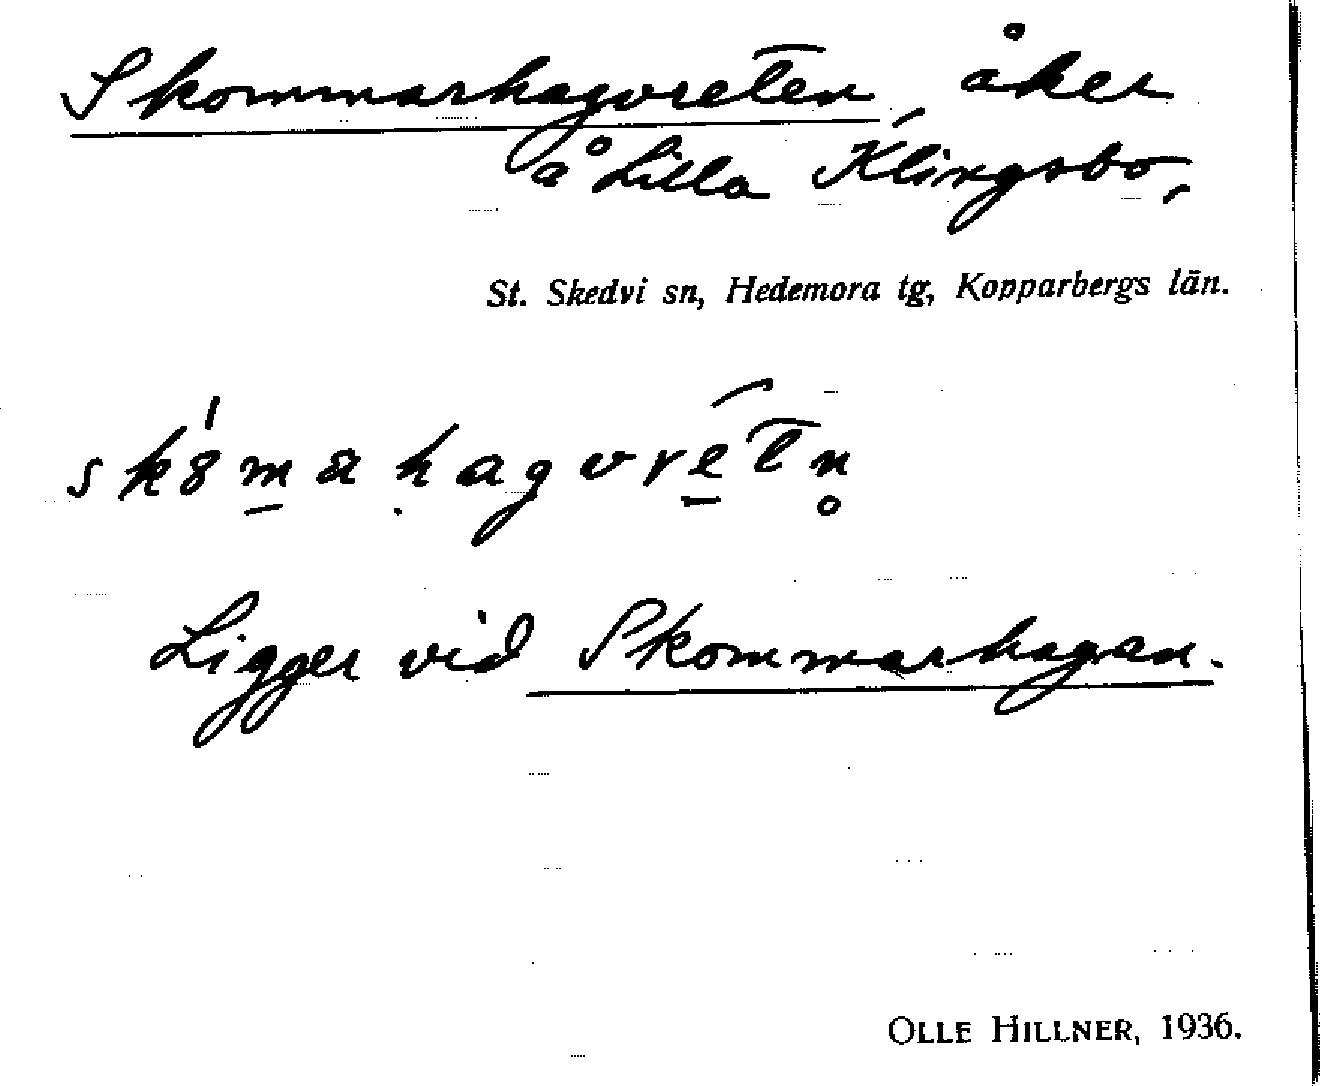 Skommarhagvreten, åker
å Lilla Klingsbo,
St. Skedvi sn, Hedemora tg, Kopparbergs län.
Ligger vid Skommarhagan.
OLLE HILLNER, 1936.